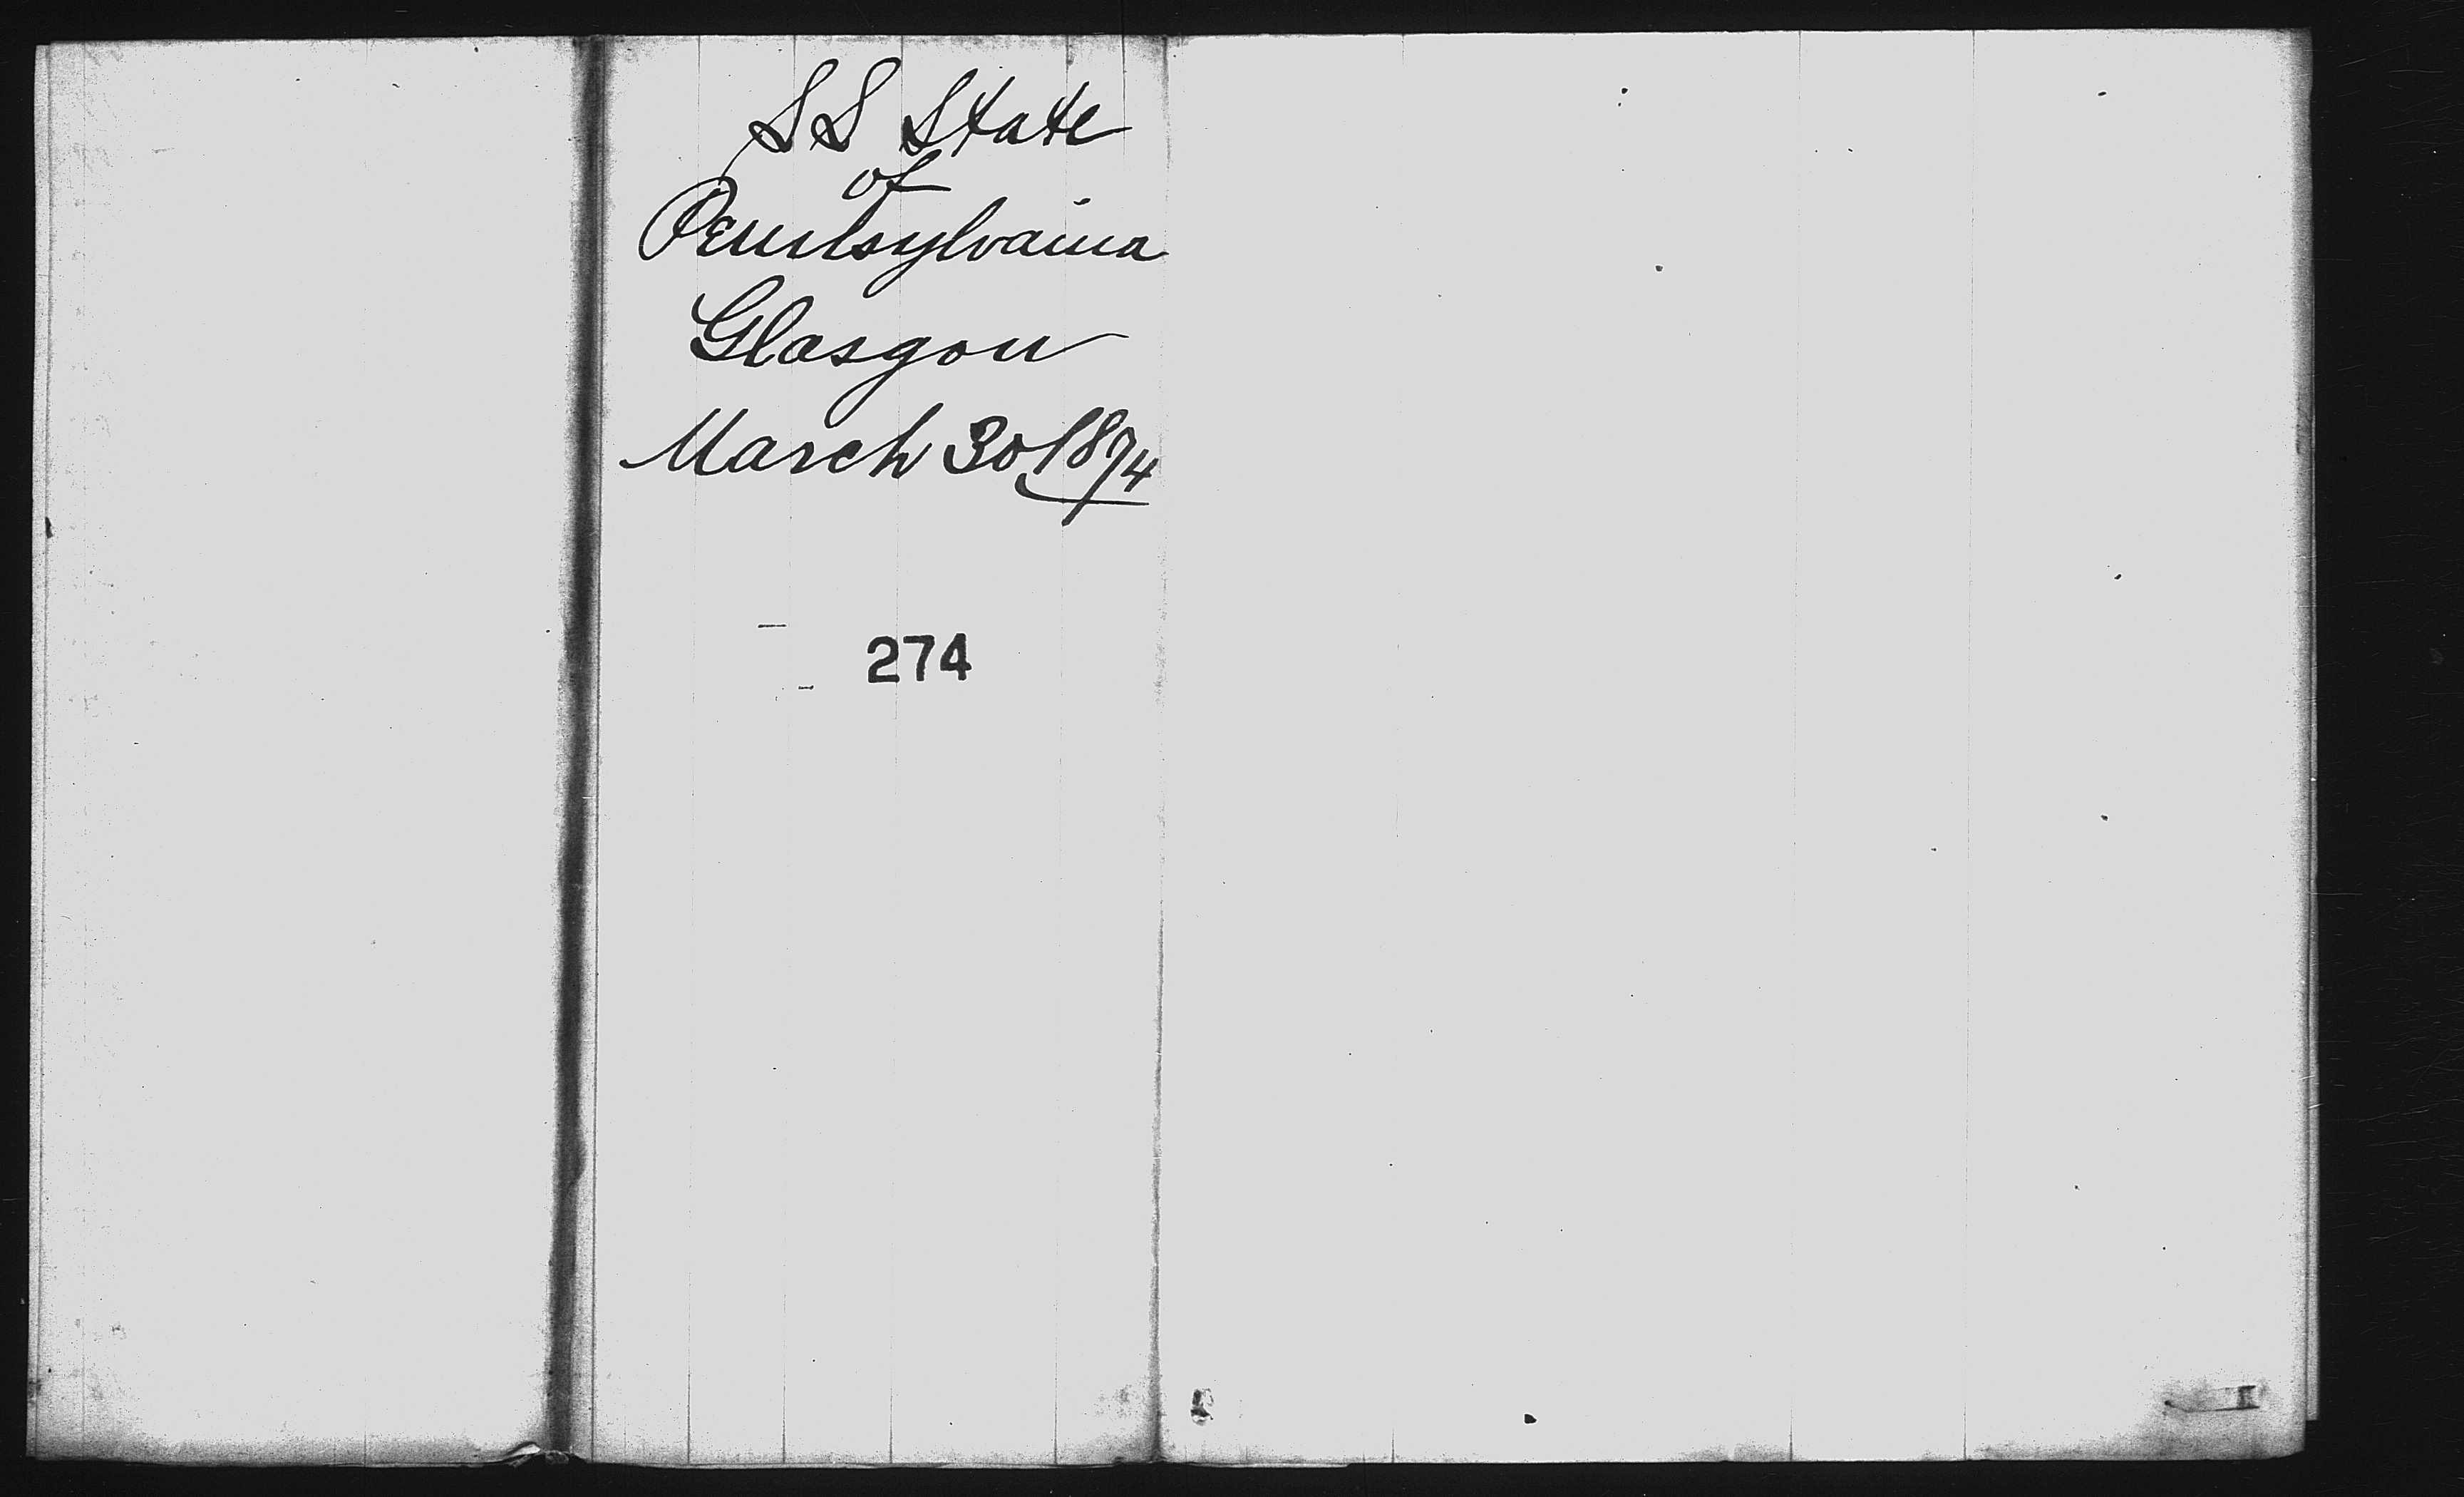 SS State
of
Pennsylvania
Glasgow
March 30 1874
274